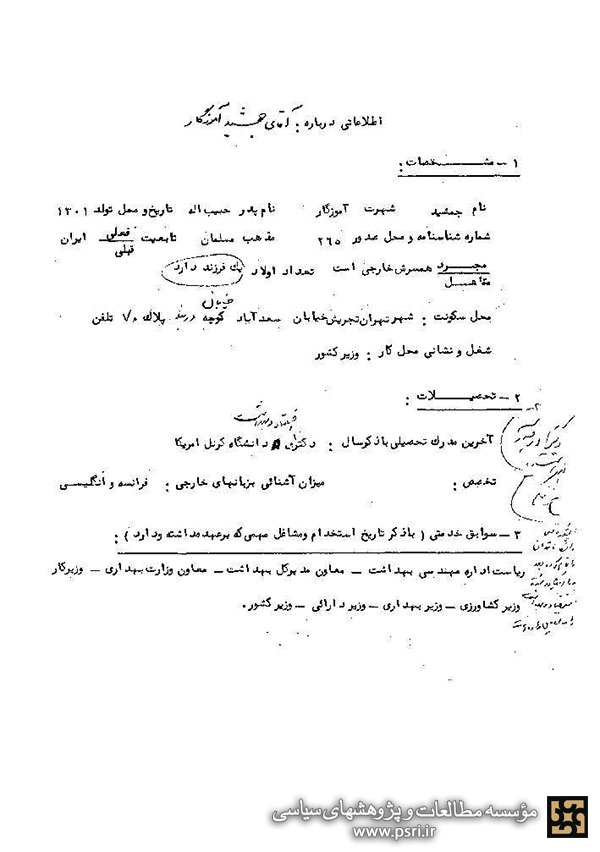 اطلاعاتی درباره : آقای جمشید آموزگار
۱ - مشخصات :
نام جمشید شهرت آموزگار نام پدر حبیب اله تاریخ و محل تولد ۱۳۰۱
شماره شناسنامه و محل صدور ۲۶۵ مذهب مسلمان تابعیت فعلی ایران
قبلی
مجرد همسرش خارجی است تعداد اولاد یک فرزند دارد
متاهل
محل سکونت : شهر تهران تجریش خیابان سعدآباد کوچه دربند پلاک ۷/۰ تلفن
شغل و نشانی محل کار : وزیر کشور
۲ - تحصیلات :
آخرین مدرک تحصیلی با ذکر سال : دکترای دانشگاه کرنل امریکا
تخصص : میزان آشنائی بزبانهای خارجی : فرانسه و انگلیسی
۳ - سوابق خدمتی ( با ذکر تاریخ استخدام و مشاغل مهمی که بر عهده داشته و دارد ) :
ریاست اداره مهندسی بهداشت - معاون مدیر کل بهداشت - معاون وزارت بهداری - وزیر کار
وزیر کشاورزی - وزیر بهداری - وزیر دارائی - وزیر کشور .
مؤسسه مطالعات و پژوهشهای سیاسی
www.psri.ir